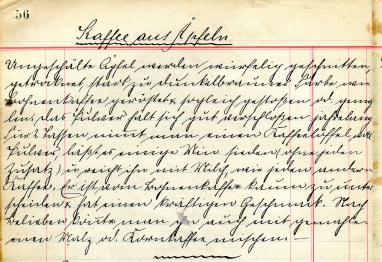 56
Kaffee aus Äpfeln
Ungeschälte Äpfel werden würfelig geschnitten,
getrocknet, stark zu dunkelbrauner Farbe wie
Bohnenkaffee geröstet u. sogleich gestoßen od. gemah-
len, das Pulver hält sich gut verschlossen jahrelang.
Für 2 Tassen nimmt man einen Kaffeelöffel voll
Pulver, läßt es einige Min. sieden (ohne jeden
Zusatz) u. reicht ihn mit Milch, wie jeden andern
Kaffee. Er ist vom Bohnenkaffee kaum zu unter-
scheiden u. hat einen kräftigen Geschmack. Nach
Belieben könnte man ihn auch mit gemahle-
nen Malz od. Kornkaffee mischen. —